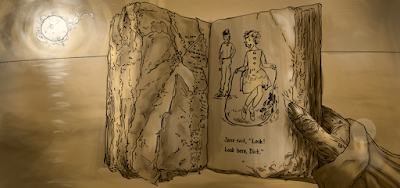 Jane said, "Look!
Look here, Dick."